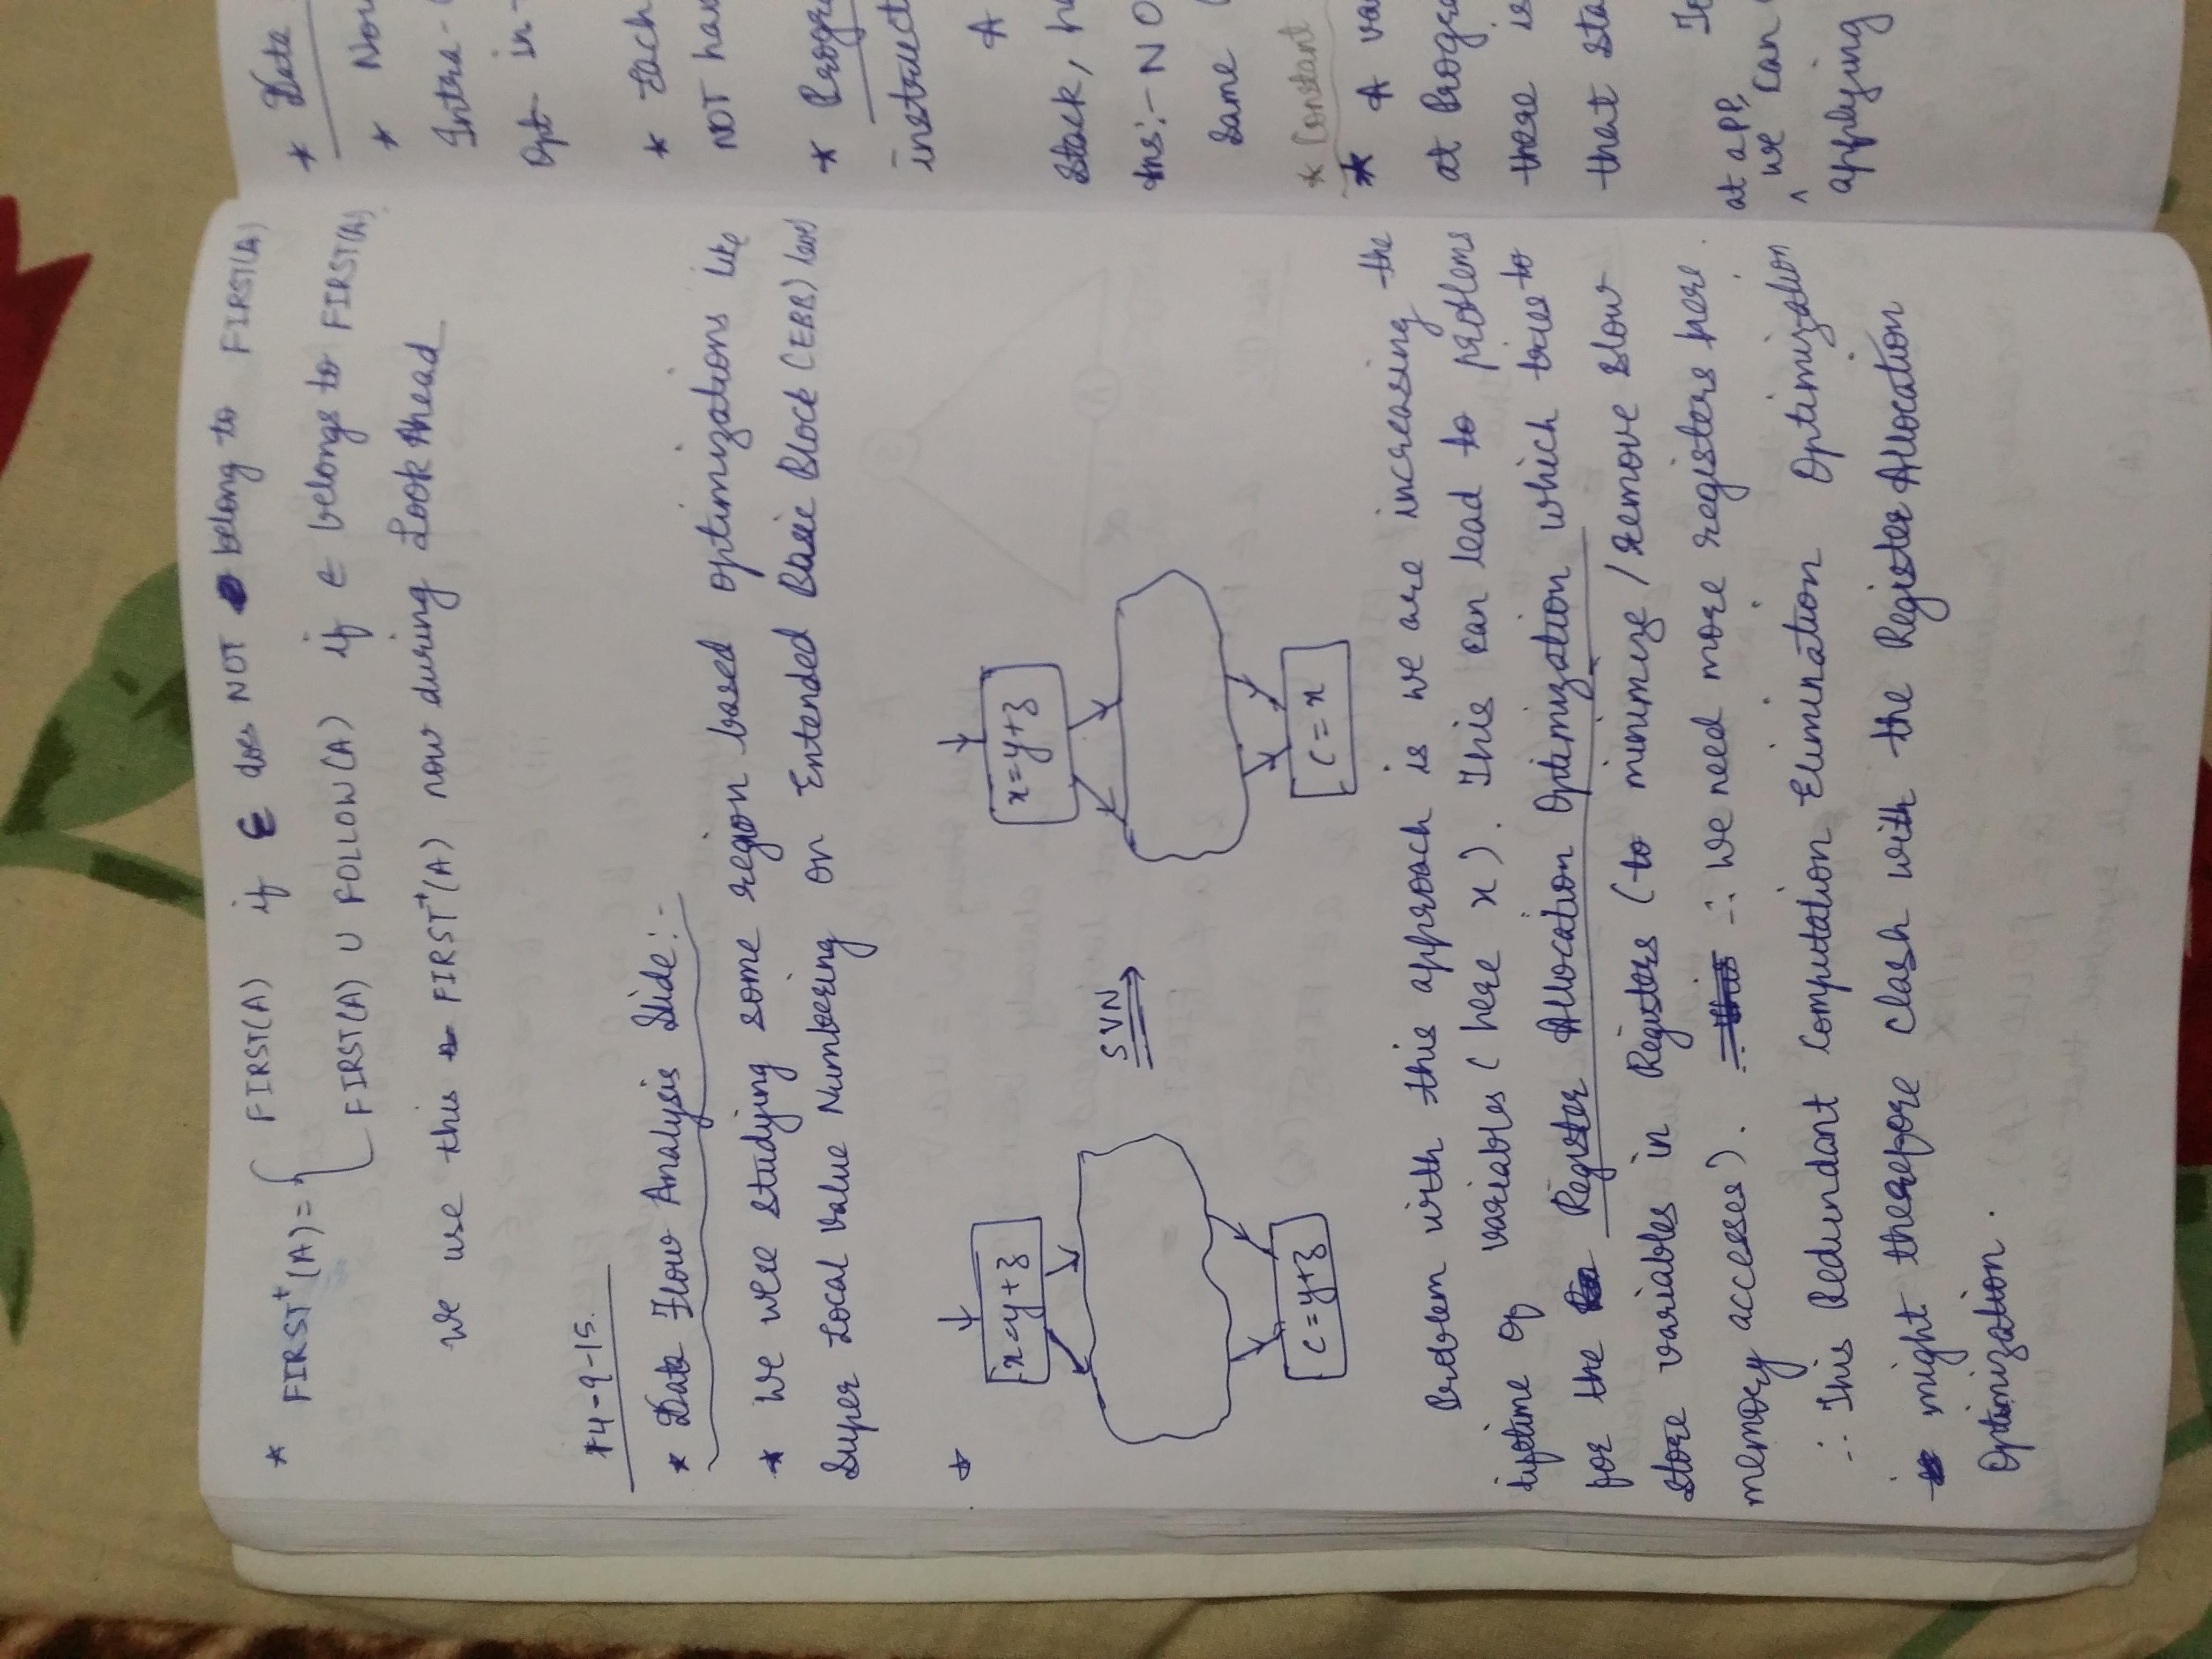 * FIRST⁺(A) = { FIRST(A) if ε does NOT belong to FIRST(A)
FIRST(A) ∪ FOLLOW(A) if ε belongs to FIRST(A)
We use this FIRST⁺(A) now during Look Ahead
14-9-15.
* Data Flow Analysis Slide:-
* We were studying some region based optimizations like
Super Local Value Numbering on Extended Basic Block (EBB) level
*
x=y+z
SVN
c=y+z
x=y+z
c=x
Problem with this approach is we are increasing the
lifetime of variables (here x). This can lead to problems
for the Register Allocation Optimization which tries to
store variables in Registers (to minimize / remove slow
memory accesses). ∴ We need more registers here.
∴ This Redundant Computation Elimination Optimization
might therefore clash with the Register Allocation
Optimization.
* Data
* Now
Intra-
Opt in-
* Each
NOT
instruct
A
Stack,
Ans:- NO
Same
* Constant
* A
at
there is
that
at a PP,
we can
applying